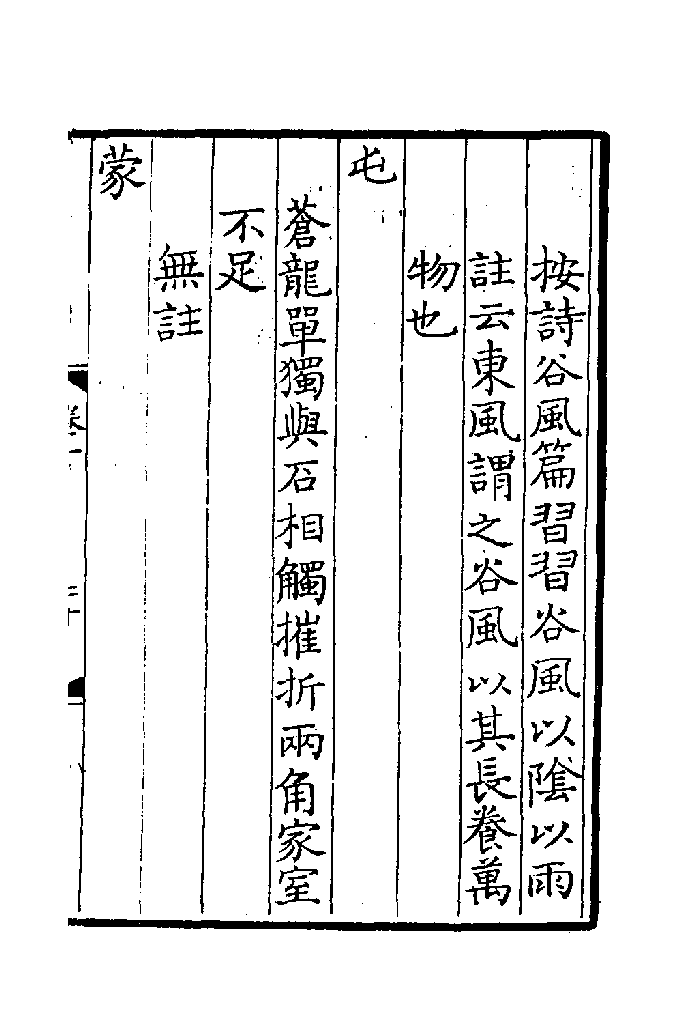 按詩谷風篇習習谷風以隂以雨
註云東風謂之谷風以其長養萬
物也
屯
蒼龍單獨與石相觸摧折兩角家室
不足
無註
蒙